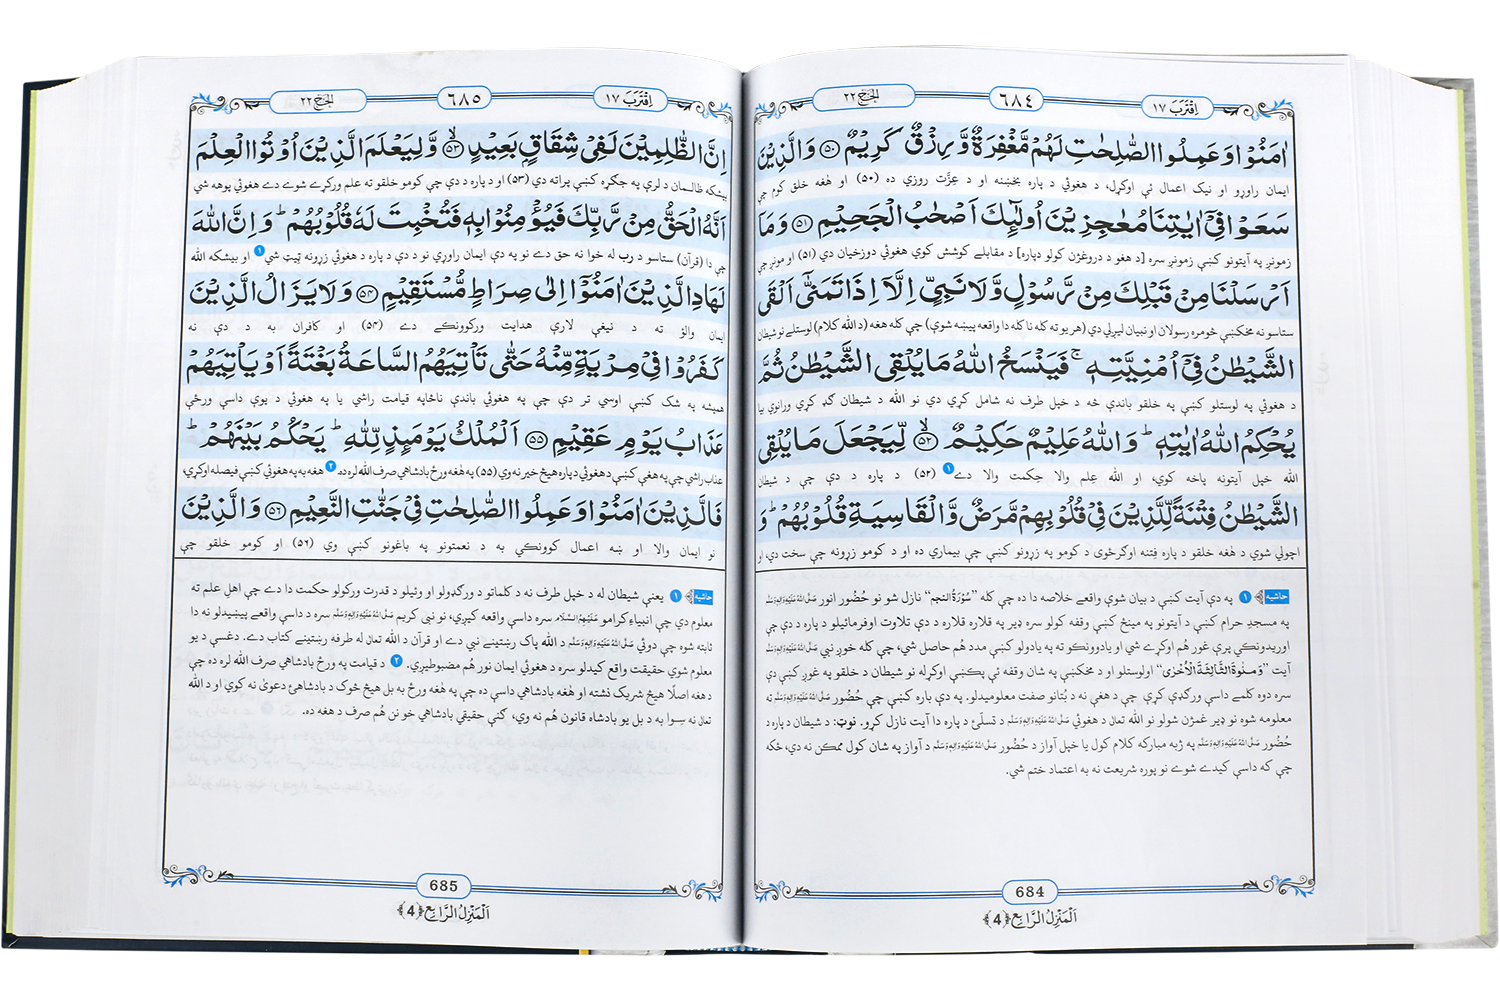 اِقْتَرَبَ ١٧
٦٨٤
الحَجّ ٢٢
اٰمَنُوْا وَعَمِلُوا الصّٰلِحٰتِ لَهُمْ مَّغْفِرَةٌ وَّرِزْقٌ كَرِيْمٌ ﴿٥٠﴾ وَالَّذِيْنَ
ايمان راوړو او نيک اعمال ئې اوکړل، د هغوئي د پاره بخښنه او د عِزَّت روزي ده (٥٠) او هٰغه خلق کوم چې
سَعَوْا فِيْۤ اٰيٰتِنَا مُعٰجِزِيْنَ اُولٰٓئِكَ اَصْحٰبُ الْجَحِيْمِ ﴿٥١﴾ وَمَاۤ
زمونږ په آيتونو کښې زمونږ سره [د هغو د دروغژن کولو دپاره] د مقابلے کوشش کوي هغوئي دوزخيان دي (٥١) او مونږ چې
اَرْسَلْنَا مِنْ قَبْلِكَ مِنْ رَّسُوْلٍ وَّلَا نَبِيٍّ اِلَّاۤ اِذَا تَمَنّٰۤى اَلْقَى
ستاسو نه مخکښې څومره رسولان او نبيان ليږلي دي (هر يو ته کله نا کله دا واقعه پيښه شوې) چې کله هغه (د الله کلام) لوستلے نو شيطان
الشَّيْطٰنُ فِيْۤ اُمْنِيَّتِهٖ ۚ فَيَنْسَخُ اللّٰهُ مَا يُلْقِى الشَّيْطٰنُ ثُمَّ
د هغوئي په لوستلو کښې په خلقو باندې څه د خپل طرف نه شامل کړي دي نو الله د شيطان ګډ کړي ورانوي بيا
يُحْكِمُ اللّٰهُ اٰيٰتِهٖ ؕ وَاللّٰهُ عَلِيْمٌ حَكِيْمٌ ﴿٥٢﴾ۙ لِّيَجْعَلَ مَا يُلْقِى
الله خپل آيتونه پاخه کوي، او الله عِلم والا حِکمت والا دے ١ (٥٢) د پاره د دې چې د شيطان
الشَّيْطٰنُ فِتْنَةً لِّلَّذِيْنَ فِيْ قُلُوْبِهِمْ مَّرَضٌ وَّالْقَاسِيَةِ قُلُوْبُهُمْ ؕ وَ
اچولي شوي د هٰغه خلقو د پاره فِتنه اوګرځوی د کومو په زړونو کښې چې بيماري ده او د کومو زړونه چې سخت دي، او
حاشيه ١ په دې آيت کښې د بيان شوې واقعے خلاصه دا ده چې کله "سُوْرَةُ النجم" نازل شو نو حُضُور انور صَلَّى اللهُ عَلَيْهِ وَاٰلِهٖ وَسَلَّم
په مسجدِ حرام کښې د آيتونو په مينځ کښې وقفه کولو سره ډير په قلاره قلاره د دې تلاوت اوفرمائيلو د پاره د دې چې
اوريدونکي پرې غور هُم اوکړے شي او يادوونکو ته په يادولو کښې مدد هُم حاصل شي، چې کله خوږ نبي صَلَّى اللهُ عَلَيْهِ وَاٰلِهٖ وَسَلَّم
آيت "وَمَنٰوةَ الثَّالِثَةَ الْاُخْرٰى" اولوستلو او د مخکښې په شان وقفه ئې پکښې اوکړله نو شيطان د خلقو په غوږ کښې دې
سره دوه کلمے داسې ورګډې کړې چې د هغې نه د بُتانو صفت معلوميدلو. په دې باره کښې چې حُضُور صَلَّى اللهُ عَلَيْهِ وَاٰلِهٖ وَسَلَّم ته
معلومه شوه نو ډير غمژن شولو نو الله تعالیٰ د هغوئي صَلَّى اللهُ عَلَيْهِ وَاٰلِهٖ وَسَلَّم د تسلّئ د پاره دا آيت نازل کړو. نوټ: د شيطان د پاره د
حُضُور صَلَّى اللهُ عَلَيْهِ وَاٰلِهٖ وَسَلَّم په ژبه مبارکه کلام کول يا خپل آواز د حُضُور صَلَّى اللهُ عَلَيْهِ وَاٰلِهٖ وَسَلَّم د آواز په شان کول ممکن نه دي، ځکه
چې که داسې کيدے شوے نو پوره شريعت نه به اعتماد ختم شي.
684
اَلْمَنْزِلُ الرَّابِع ﴿4﴾
اِقْتَرَبَ ١٧
٦٨٥
الحَجّ ٢٢
اِنَّ الظّٰلِمِيْنَ لَفِيْ شِقَاقٍۭ بَعِيْدٍ ﴿٥٣﴾ۙ وَّلِيَعْلَمَ الَّذِيْنَ اُوْتُوا الْعِلْمَ
بيشکه ظالمان د لرې په جګړه کښې پراته دي (٥٣) او د پاره د دې چې کومو خلقو ته علم ورکړے شوے دے هغوئي پوهه شي
اَنَّهُ الْحَقُّ مِنْ رَّبِّكَ فَيُؤْمِنُوْا بِهٖ فَتُخْبِتَ لَهٗ قُلُوْبُهُمْ ؕ وَاِنَّ اللّٰهَ
چې دا (قرآن) ستاسو د رب له خوا نه حق دے نو په دې ايمان راوړي نو د دې د پاره د هغوئي زړونه ټيټ شي ١ او بيشکه الله
لَهَادِ الَّذِيْنَ اٰمَنُوْۤا اِلٰى صِرَاطٍ مُّسْتَقِيْمٍ ﴿٥٤﴾ وَلَا يَزَالُ الَّذِيْنَ
ايمان والؤ ته د نيغې لارې هدايت ورکوونکے دے (٥٤) او کافران به د دې نه
كَفَرُوْا فِيْ مِرْيَةٍ مِّنْهُ حَتّٰى تَاْتِيَهُمُ السَّاعَةُ بَغْتَةً اَوْ يَاْتِيَهُمْ
هميشه په شک کښې اوسي تر دې چې په هغوئي باندې ناڅاپه قيامت راشي يا په هغوئي د يوې داسې ورځې
عَذَابُ يَوْمٍ عَقِيْمٍ ﴿٥٥﴾ اَلْمُلْكُ يَوْمَئِذٍ لِّلّٰهِ ؕ يَحْكُمُ بَيْنَهُمْ ؕ
عذاب راشي چې په هغې کښې د هغوئي دپاره هيڅ خير نه وي (٥٥) په هٰغه ورځ بادشاهي صرف الله لره ده ٢ هغه به په هغوئي کښې فيصله اوکړي،
فَالَّذِيْنَ اٰمَنُوْا وَعَمِلُوا الصّٰلِحٰتِ فِيْ جَنّٰتِ النَّعِيْمِ ﴿٥٦﴾ وَالَّذِيْنَ
نو ايمان والا او ښه اعمال کوونکي به د نعمتونو په باغونو کښې وي (٥٦) او کومو خلقو چې
حاشيه ١ يعنې شيطان له د خپل طرف نه د کلماتو د ورګډولو او وئيلو د قدرت ورکولو حکمت دا دے چې اهلِ علم ته
معلوم دي چې انبياءِ کرامو عَلَيْهِمُ السَّلَام سره داسې واقعه کيږي، نو نبي کريم صَلَّى اللهُ عَلَيْهِ وَاٰلِهٖ وَسَلَّم سره د داسې واقعے پيښيدلو نه دا
ثابته شوه چې دوئي صَلَّى اللهُ عَلَيْهِ وَاٰلِهٖ وَسَلَّم د الله پاک رښتينے نبي دے او قرآن د الله تعالیٰ له طرفه رښتينے کتاب دے. دغسې د يو
معلوم شوي حقيقت واقع کيدلو سره د هغوئي ايمان نور هُم مضبوطيږي. ٢ د قيامت په ورځ بادشاهي صرف الله لره ده چې
د هغه اصلًا هيڅ شريک نشته او هٰغه بادشاهي داسې ده چې په هٰغه ورځ به بل هيڅ څوک د بادشاهئ دعویٰ نه کوي او د الله
تعالیٰ نه سِوا به د بل يو بادشاه قانون هُم نه وي، ګنې حقيقي بادشاهي خو نن هُم صرف د هغه ده.
685
اَلْمَنْزِلُ الرَّابِع ﴿4﴾